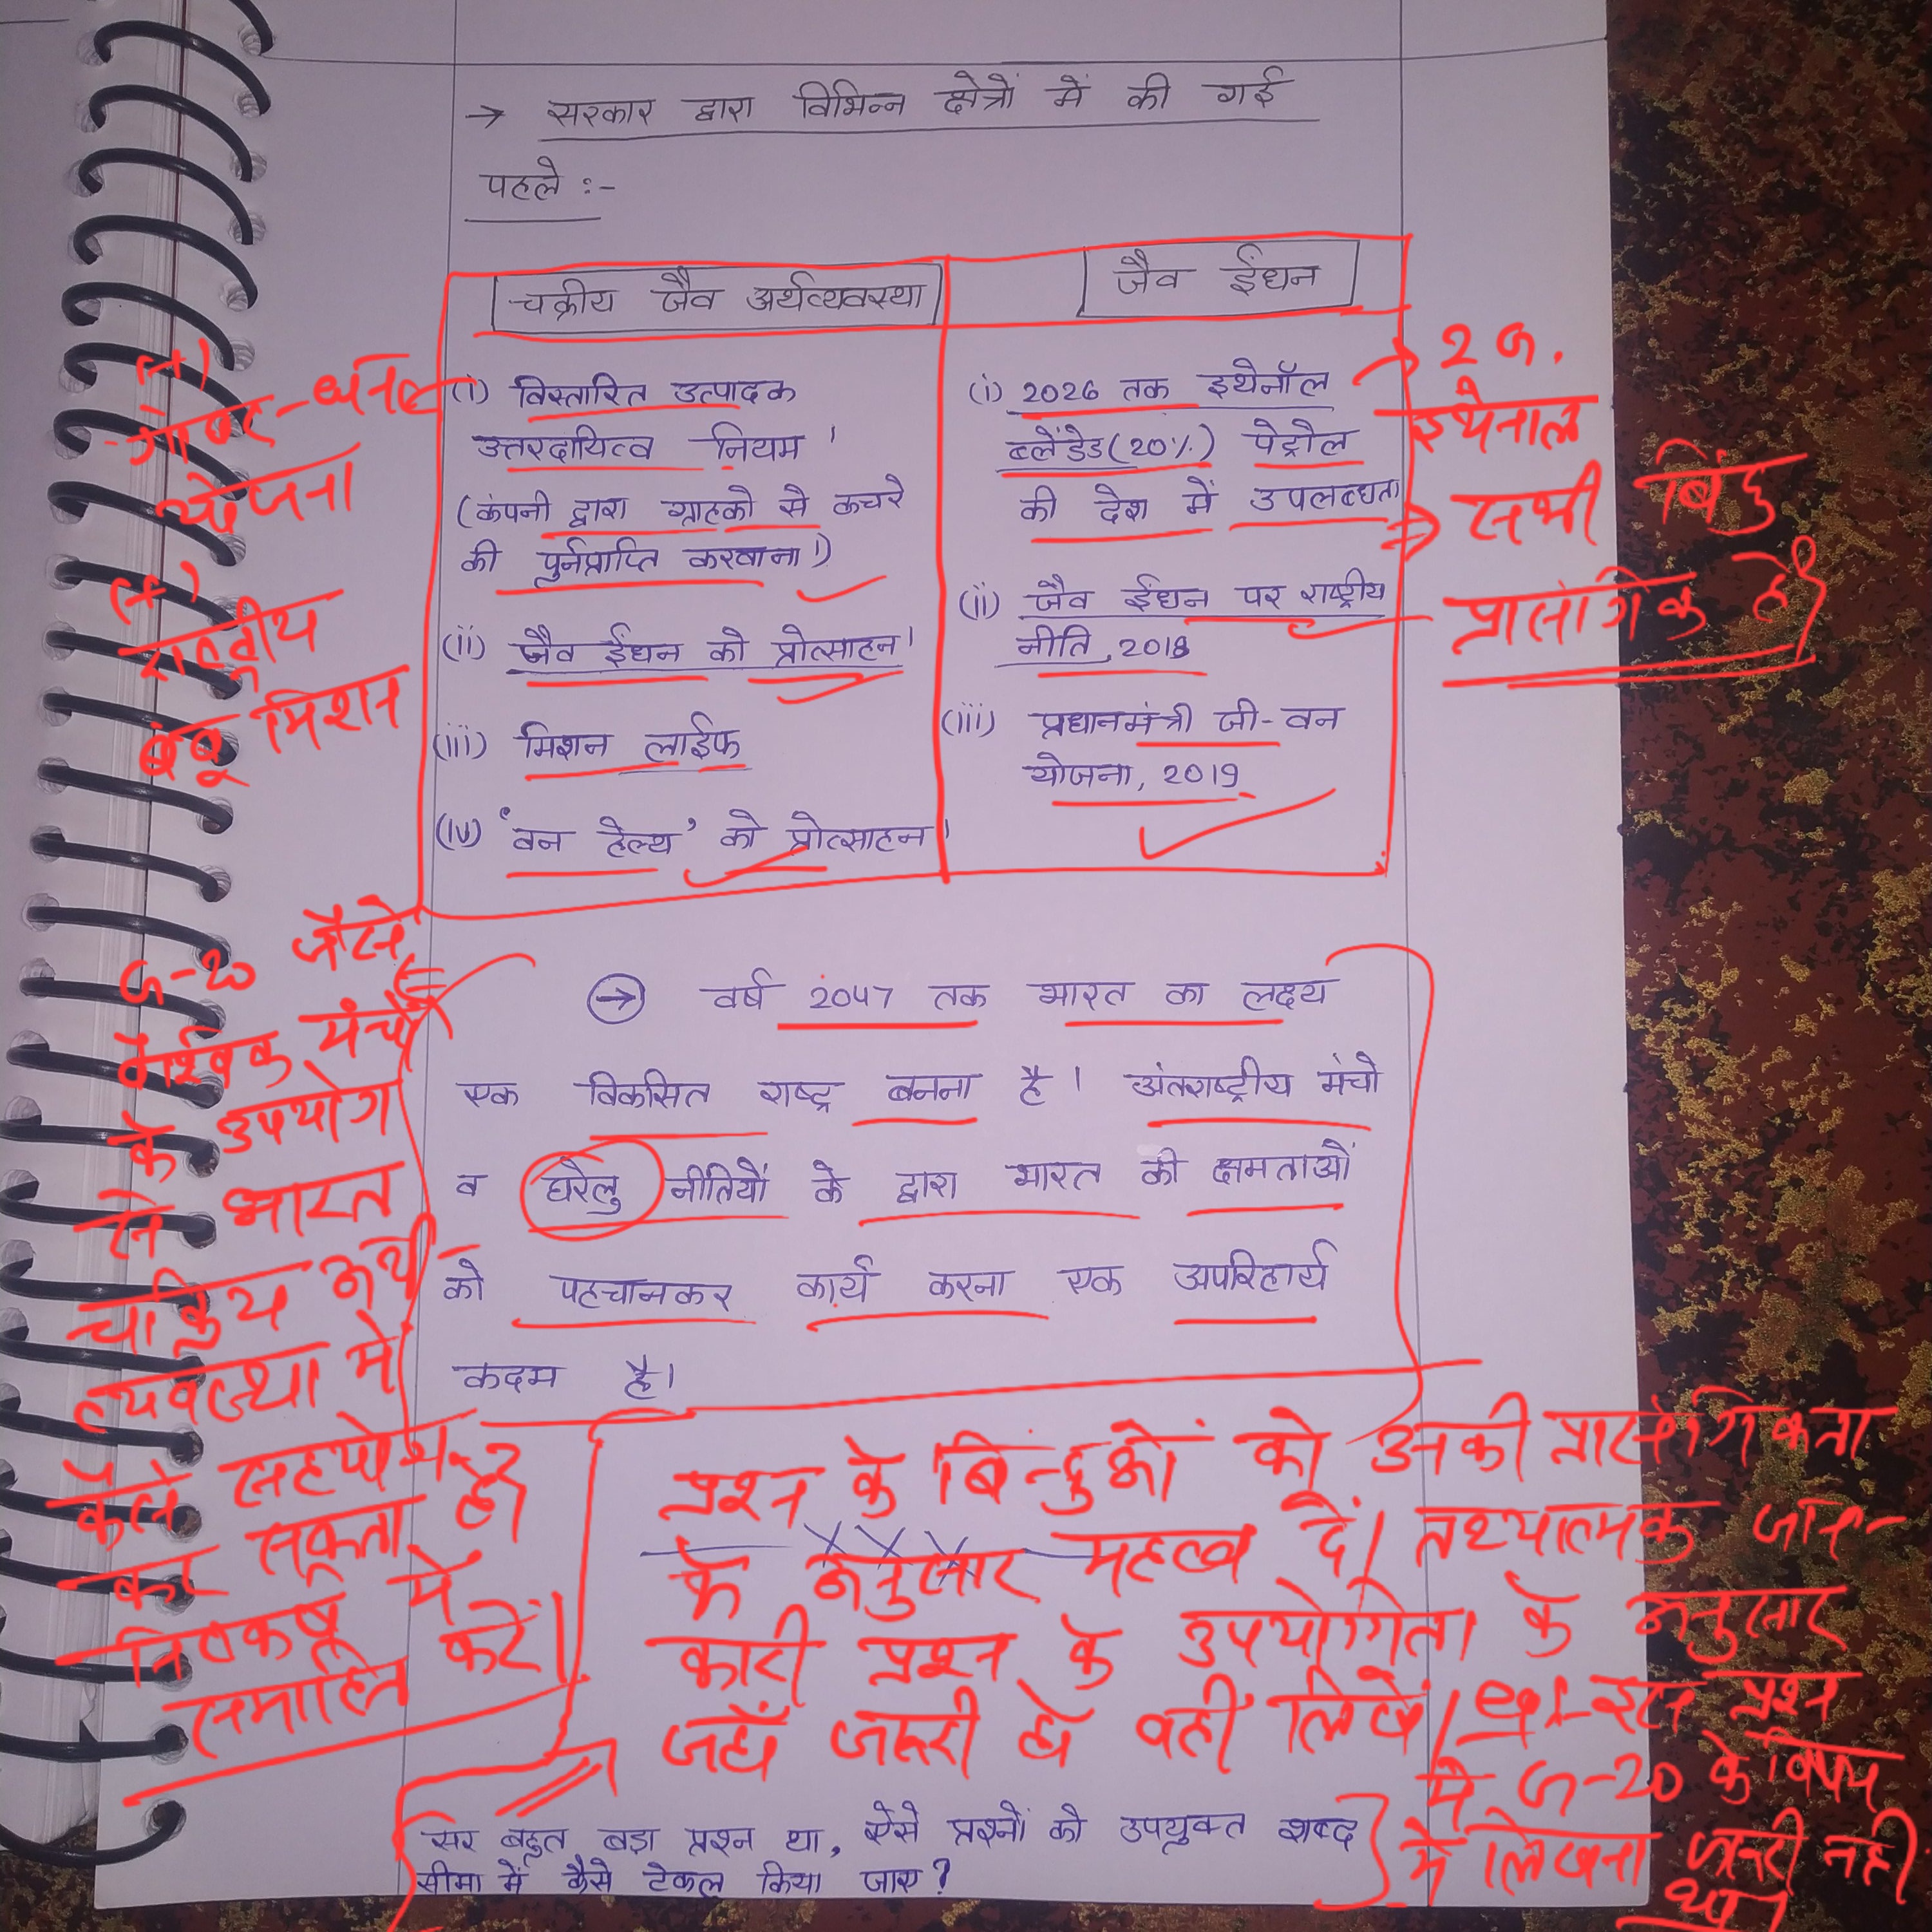 → सरकार द्वारा विभिन्न क्षेत्रों में की गई
पहले :-
चक्रीय जैव अर्थव्यवस्था
(i) विस्तारित उत्पादक
उत्तरदायित्व नियम ।
(कंपनी द्वारा ग्राहको से कचरे
की पुर्नप्राप्ति करवाना।)
(ii) जैव ईंधन को प्रोत्साहन।
(iii) मिशन लाईफ
(iv) 'वन हेल्थ' को प्रोत्साहन।
जैव ईंधन
(i) 2026 तक इथेनॉल
ब्लेंडेड(20%) पेट्रौल
की देश में उपलब्धता
(ii) जैव ईंधन पर राष्ट्रीय
नीति, 2018
(iii) प्रधानमंत्री जी-वन
योजना, 2019
(+)
गोबर-धन
योजना
(+)
राष्ट्रीय
बंबू मिशन
→ 2 G.
इथेनाल
⇒ सभी बिंदु
प्रासंगिक है
→ वर्ष 2047 तक भारत का लक्ष्य
एक विकसित राष्ट्र बनना है। अंतराष्ट्रीय मंचो
व घरेलु नीतियों के द्वारा भारत की क्षमताओं
को पहचानकर कार्य करना एक अपरिहार्य
कदम है।
G-20 जैसे
वैश्विक मंचों
के उपयोग
से भारत
चक्रिय अर्थ-
व्यवस्था में
कैसे सहयोग
कर सकता है
निष्कर्ष में
समाहित करें।
प्रश्न के बिन्दुओं को उनकी प्रासंगिकता
के अनुसार महत्व दें। तथ्यात्मक जान-
कारी प्रश्न के उपयोगिता के अनुसार
जहाँ जरूरी हो वहीं लिखें। eg:- इस प्रश्न
में G-20 के विषय
में लिखना जरूरी नही
था।
सर बहुत बड़ा प्रश्न था, ऐसे प्रश्नों को उपयुक्त शब्द
सीमा में कैसे टेकल किया जाए?